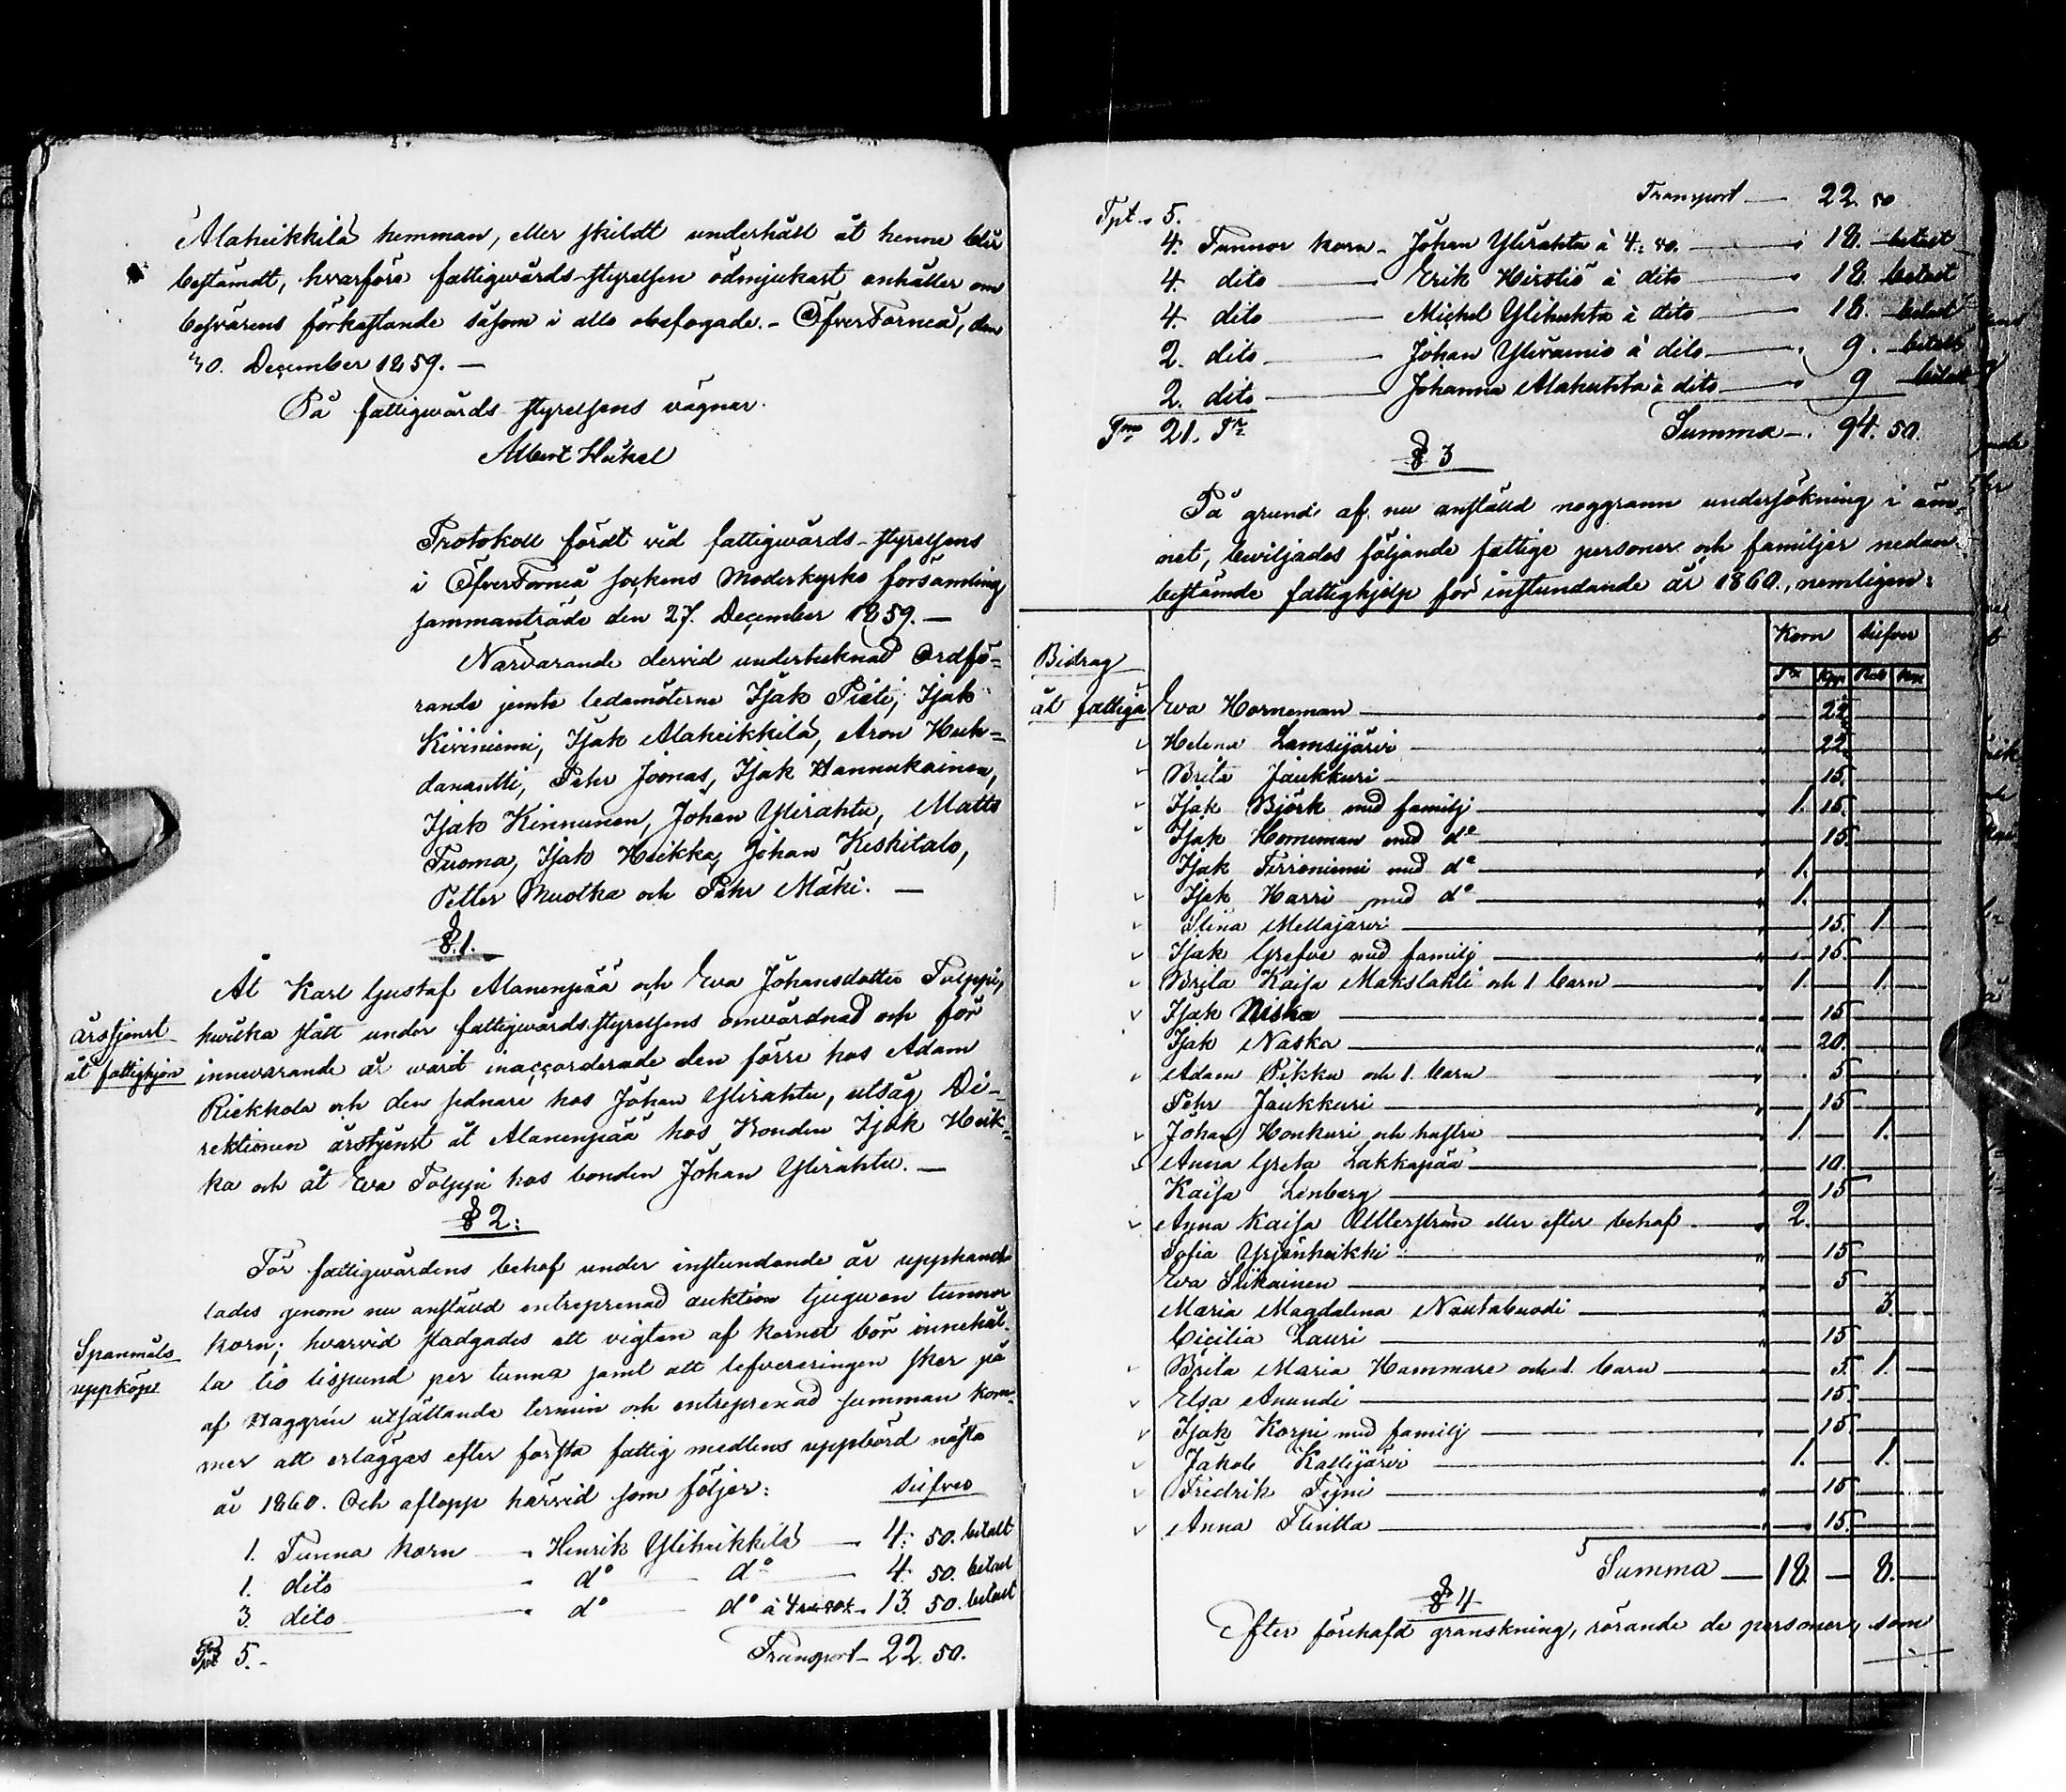 Alaheikkilä hemman, eller skildt underhåll åt henne blir
bestämdt, hvarföre fattigwårds-styrelsen ödmjukast anhåller om
besvärens förkastande såsom i allo obefogade. - ÖfverTorneå, den
30. December 1859. —
På fattigwårds-styrelsens vägnar.
Albert Heikel
Protokoll fördt vid fattigwårds-styrelsens
i ÖfverTorneå sockens Moderkyrko församling
sammanträde den 27. December 1859. —
Närvarande dervid undertecknad Ordfö=
rande jemte ledamöterne Isak Pieti, Isak
Kiviniemi, Isak Alaheikkilä, Aron Huh=
danantti, Pehr Joonas, Isak Hannukainen,
Isak Kinnunen, Johan Ylirahtu, Matts
Tuoma, Isak Heikka, Johan Keskitalo,
Petter Muotka och Pehr Mäki. —
§.1.
Årstjenst
åt fattighjon
Åt Karl Gustaf Alanenpää och Eva Johansdotter Tolppi,
hwilka stått under fattigwårdsstyrelsens omvårdnad och för
innewarande år warit inaccorderade den förre hos Adam
Riekkola och den sednare hos Johan Ylirahtu, utsåg Di-
rektionen årstjenst åt Alanenpää hos Bonden Isak Heik=
ka och åt Eva Tolppi hos bonden Johan Ylirahtu. —
§ 2:
Spanmåls
uppköpe
För fattigwårdens behof under instundande år upphand-
lades genom nu anställd entreprenad auktion tjuguen tunnor
korn; hvarvid stadgades att vigten af kornet bör innehål-
la tio lispund per tunna samt att lefvereringen sker på
af Haggrén utsättande termin och entreprenad summan kom-
mer att erläggas efter första fattig medlens uppbörd nästa
år 1860. Och aflopp härvid som följer: Silfver
1. Tunna korn — Henrik Yliheikkilä — 4: 50. betalt
1. dito - d° d° — 4. 50. betalt
3. dito - d° d° à 4 — 13. 50. betalt
5. - Transport - 22. 50.
Transport — 22. 50
Tpt. 5.
4. Tunnor korn - Johan Ylirahtu à 4: 50. — 18. betalt
4. dito — Erik Hirstiö à dito — 18. betalt
4. dito — Michel Ylihuhta à dito — 18. betalt
2. dito — Johan Ylivainio à dito — 9. betalt
2. dito — Johanna Alahuhta à dito — 9 betalt
Sma 21. Tr Summa — 94. 50.
§ 3
På grund af nu anställd noggrann undersökning i äm-
net, beviljades följande fattige personer och familjer nedan-
bestämde fattighjelp för instundande år 1860, nemligen:
Korn Silfver
Bidrag
Tr Kpp Rub Kop
åt fattiga Eva Horneman — 22
Helena Lamsijärvi — 22
Brita Jaukkuri — 15.
Isak Björk med familj — 1. 15.
Isak Horneman med d° — 15.
Isak Tirroniemi med d° — 1.
Isak Harri med d° — 1.
Stina Mellajärvi — 15. 1.
Isak Grefve med familj — 15.
Brita Kaisa Makslahti och 1 barn — 1. 1.
Isak Niska — 15
Isak Naska — 20.
Adam Pikku och 1. barn — 5
Pehr Jaukkuri — 15
Johan Honkuri och hustru — 1. 1.
Anna Greta Lakkapää — 10.
Kaisa Linberg — 15
Anna Kaisa Otterström eller efter behof — 2.
Sofia Yrjänheikki — 15
Eva Siikainen — 5
Maria Magdalena Nautabuodi — 3.
Cicilia Lauri — 15
Brita Maria Hammare och 1. barn — 5. 1.
Elsa Anundi — 15.
Isak Korpi med familj — 15
Jakob Kallijärvi — 1. 1.
Fredrik Tijni — 15
Anna Flinitta — 15.
Summa — 18. — 8. —
§ 4
Efter förehafd granskning, rörande de personer, som